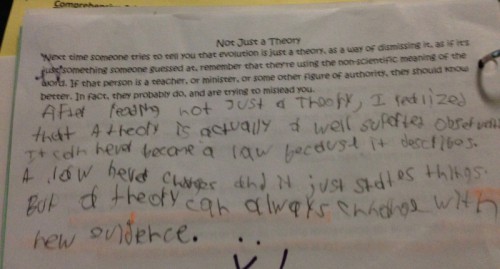 Comprehension
Not Just a Theory
"Next time someone tries to tell you that evolution is just a theory, as a way of dismissing it, as if it's
just something someone guessed at, remember that they're using the non-scientific meaning of the
word. If that person is a teacher, or minister, or some other figure of authority, they should know
better. In fact, they probably do, and are trying to mislead you.
After reading not Just a Theory, I realized
that A theory is actually a well
It can never become a law because it describes.
A law never changes and it just states things.
But a theory can always change with
new evidence. . .